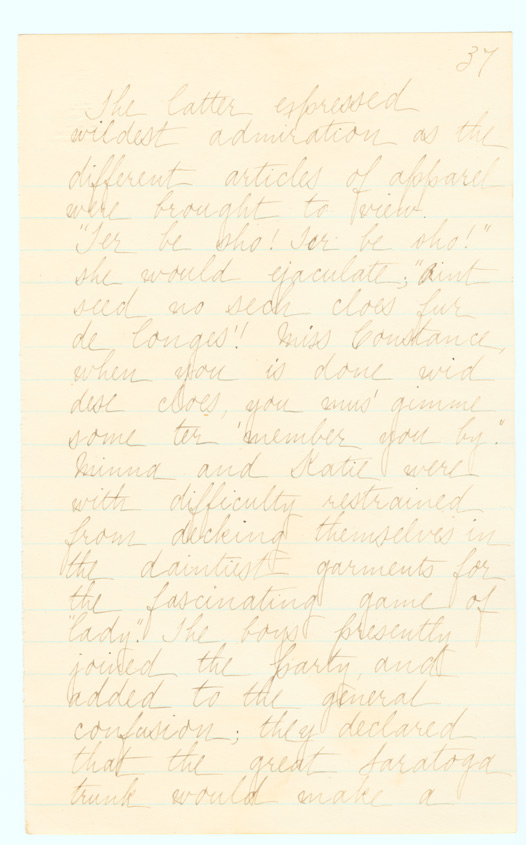 37
The latter expressed
wildest admiration as the
different articles of apparel
were brought to view.
"Ter be sho! Ter be sho!"
she would ejaculate; "Aint
seed no sech cloes fur
de longes'! Miss Constance,
when you is done wid
dese cloes, you mus' gimme
some ter 'member you by."
Minna and Katie were
with difficulty restrained
from decking themselves in
the daintiest garments for
the fascinating game of
"lady". The boys presently
joined the party, and
added to the general
confusion; they declared
that the great Saratoga
trunk would make a